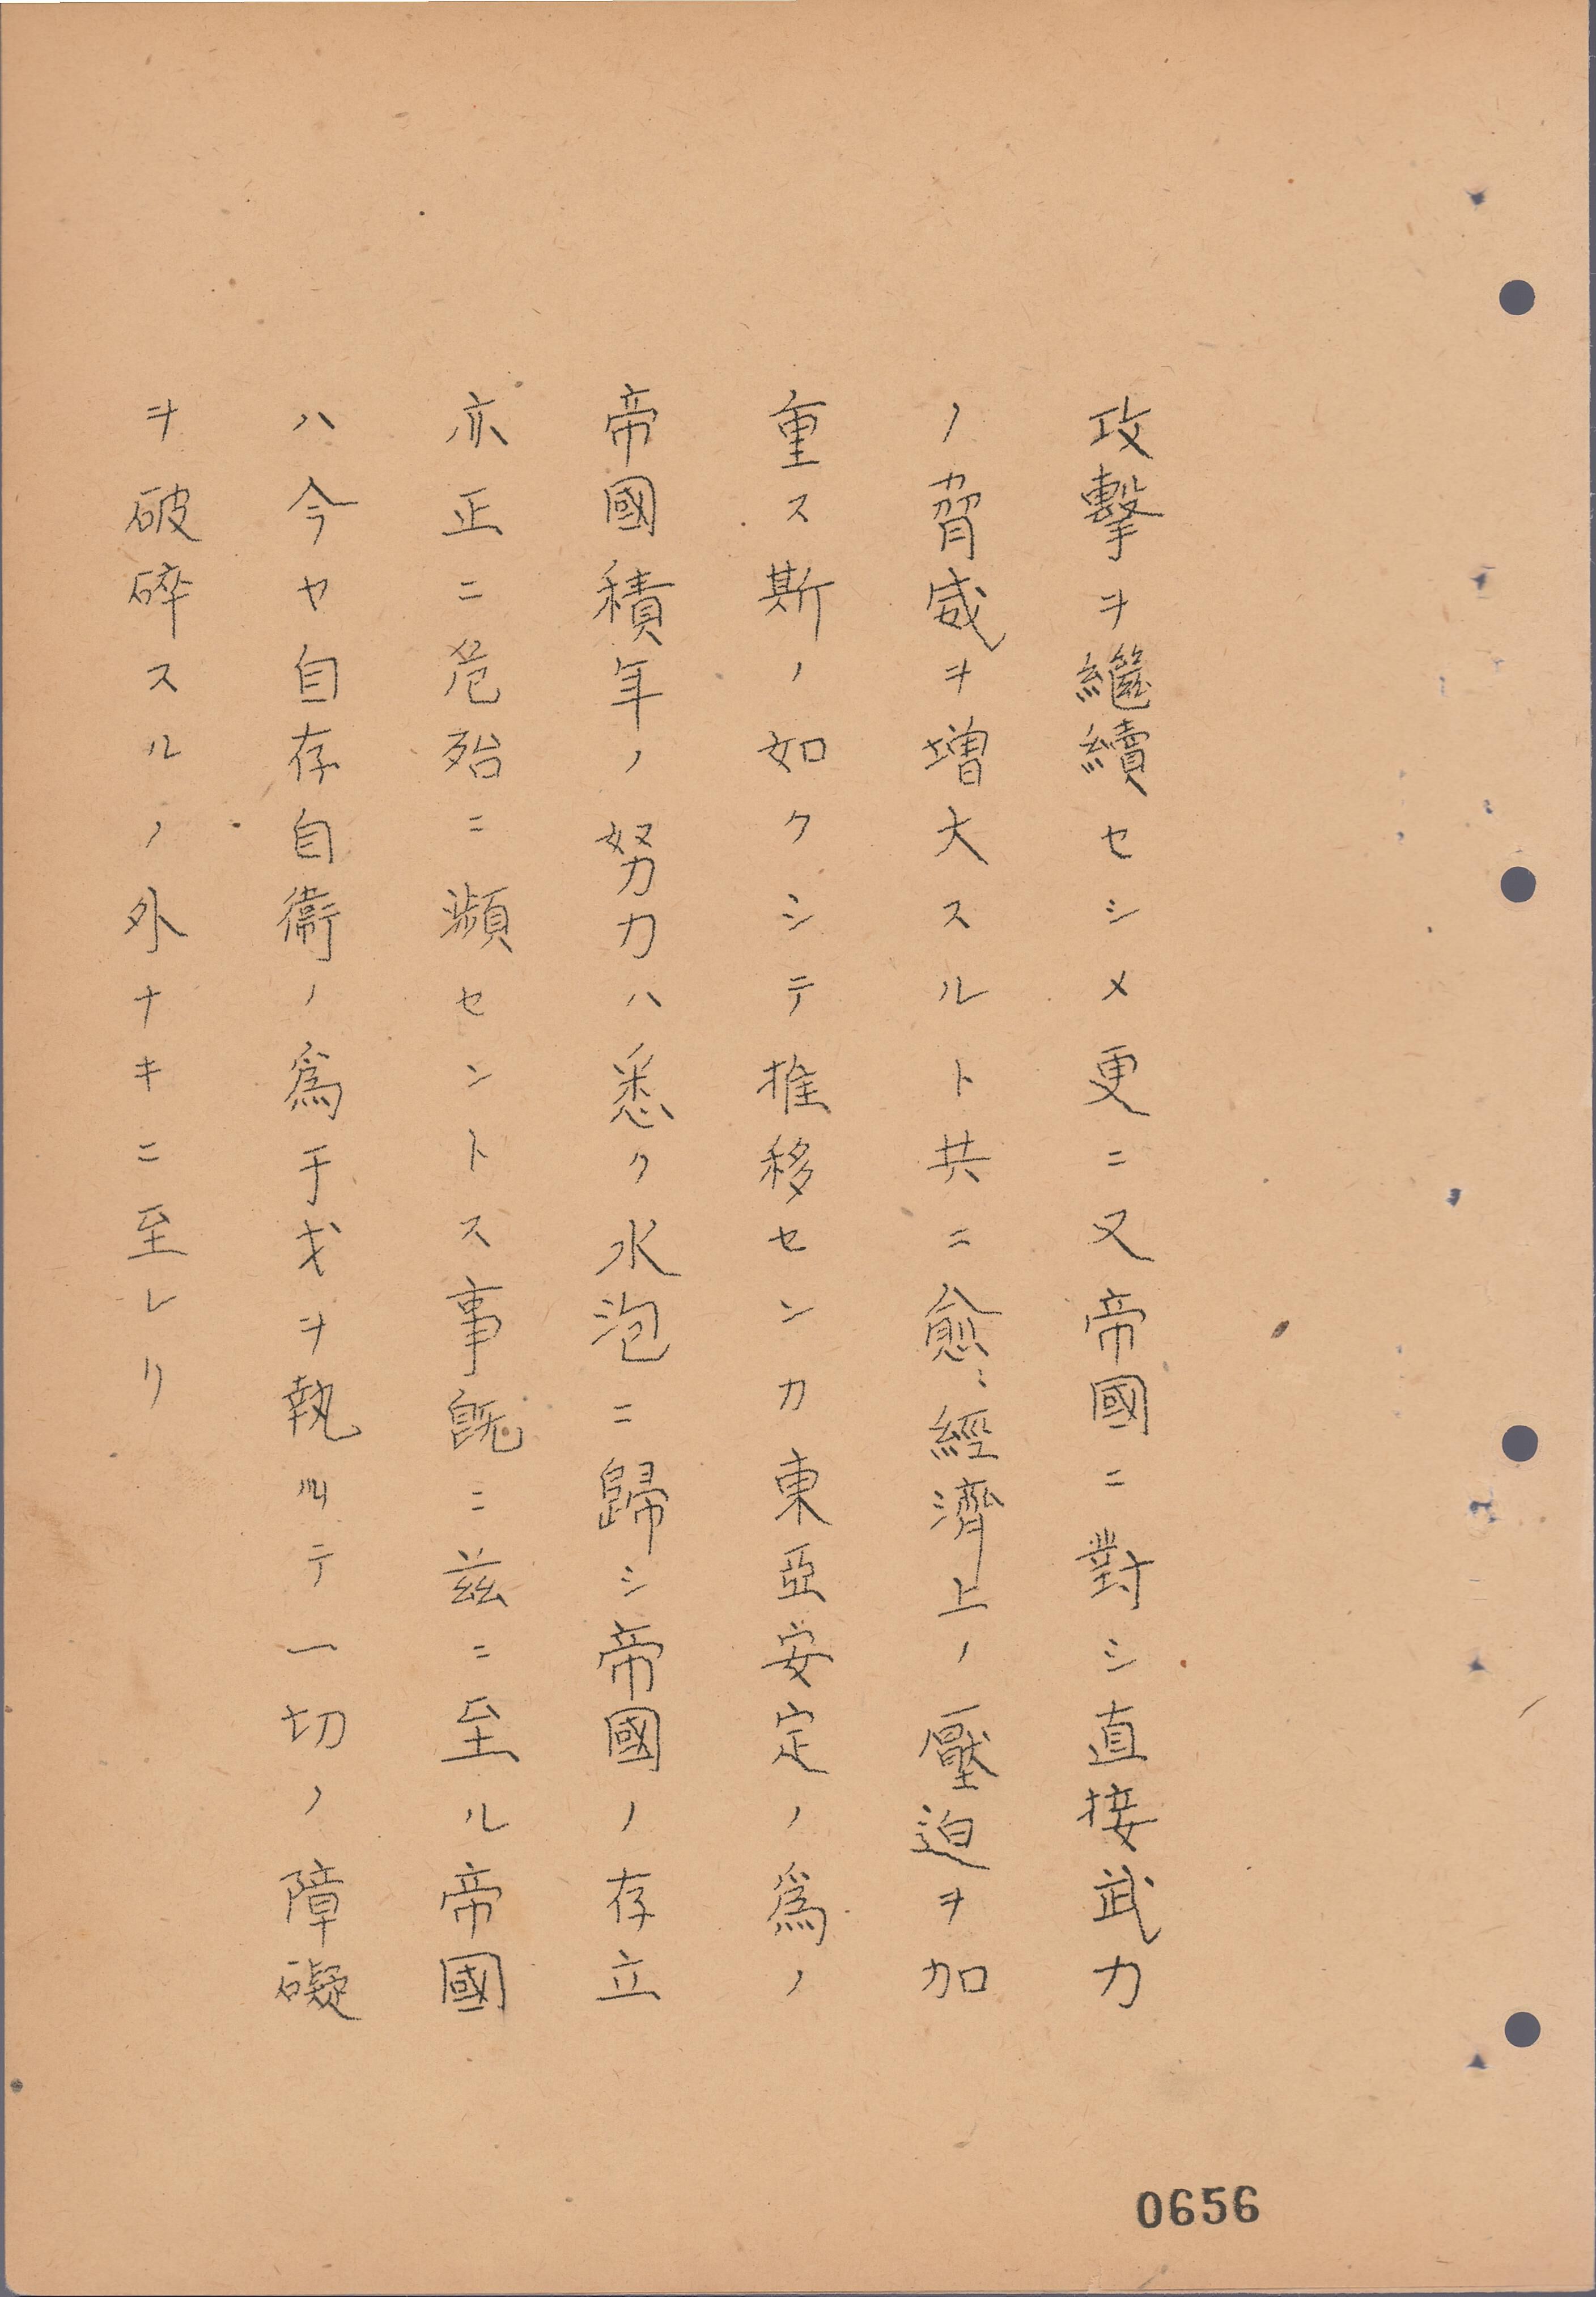 攻擊ヲ繼續セシメ更ニ又帝國ニ對シ直接武力
ノ脅威ヲ增大スルト共ニ愈〻經濟上ノ壓迫ヲ加
重ス斯ノ如クシテ推移センカ東亞安定ノ爲ノ
帝國積年ノ努力ハ悉ク水泡ニ歸シ帝國ノ存立
亦正ニ危殆ニ瀕セントス事旣ニ茲ニ至ル帝國
ハ今ヤ自存自衞ノ爲干戈ヲ執ツテ一切ノ障礙
ヲ破碎スルノ外ナキニ至レリ
0656